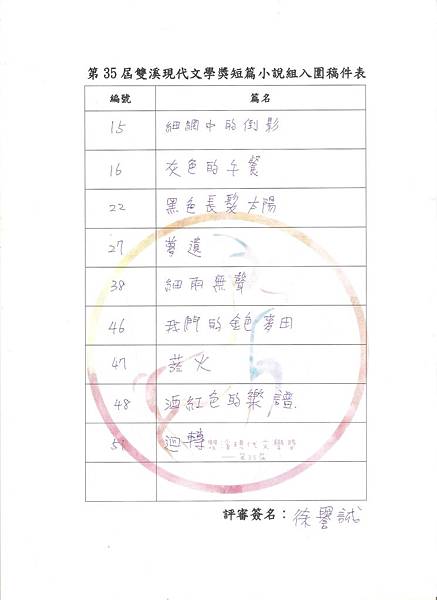 第 35 屆雙溪現代文學獎短篇小說組入圍稿件表
編號 篇名
15 細網中的倒影
16 灰色的午餐
22 黑色長髮太陽
27 夢遠
38 細雨無聲
46 我們的金色麥田
47 菸火
48 酒紅色的樂譜.
51 迴轉
雙溪現代文學獎
第35屆
評審簽名：徐譽誠